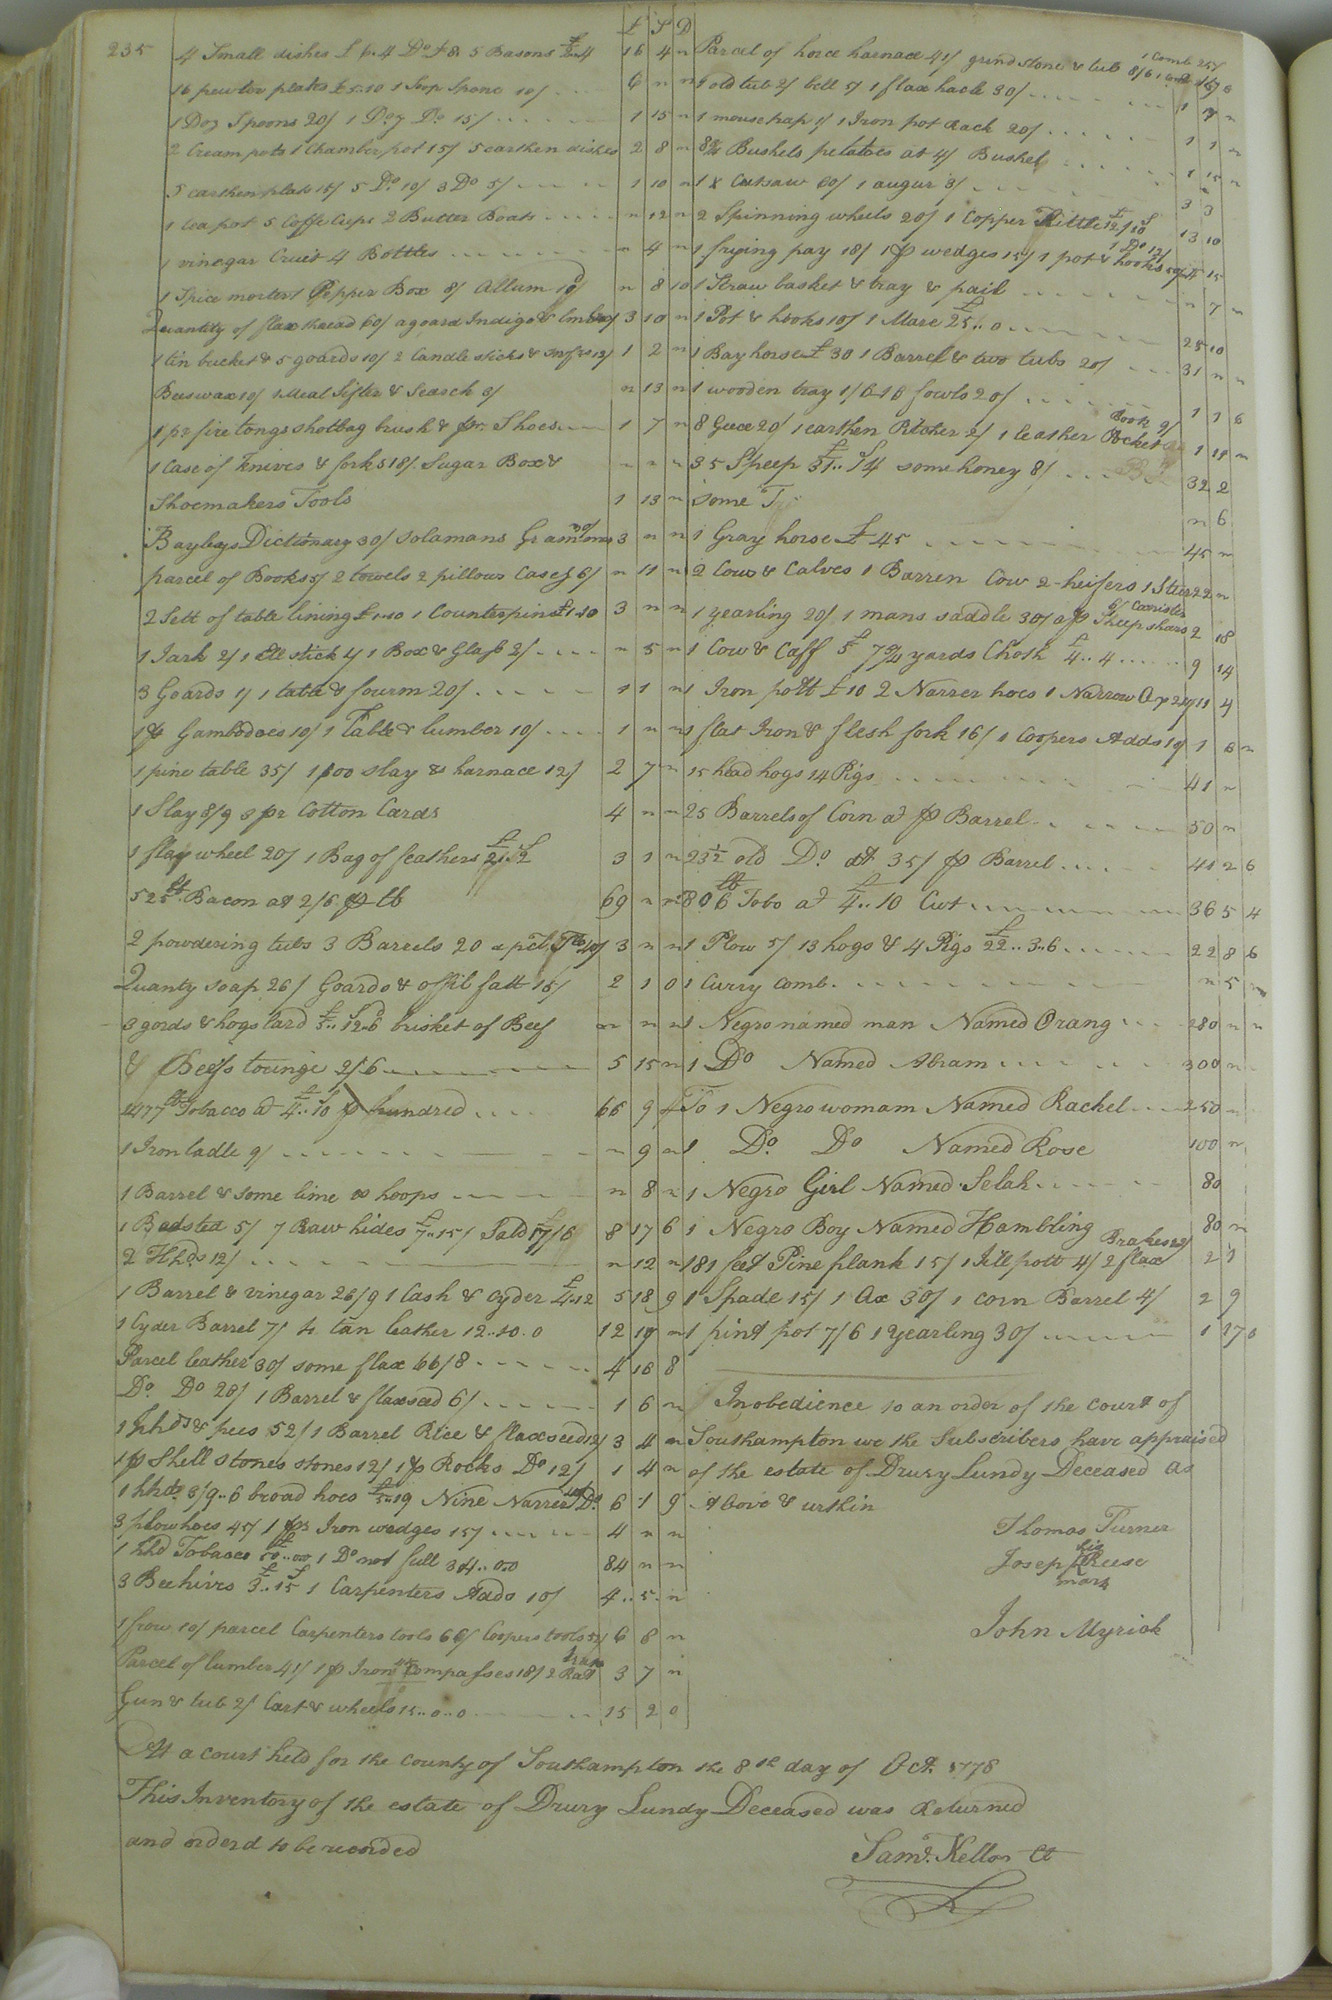 235
£ S D
4 Small dishes £ 6.4 Do £8 5 Basons £2.4 16 4 "
16 pewter plates £5.10 1 Soop Spone 10/ 6 " "
1 Doz Spoons 20/ 1 Doz Do 15/ 1 15 "
2 Cream pots 1 Chamber pot 15/ 5 earthen dishes 2 8 "
5 earthen plats 15/ 5 Do 10/ 3 Do 5/ 1 10 "
1 tea pot 5 Coffe Cups 2 Butter Boats " 12 "
1 vinegar Cruit 4 Bottles " 4 "
1 Spice morter 1 Pepper Box 8/ Allum 10d " 8 10
Quantity of flax thread 60/ a goard Indigo & 3 10 "
1 tin bucket & 5 goards 10/ 2 Candle sticks & 12/ 1 2 "
Beeswax 10/ 1 Meal Sifter & Search 3/ " 13 "
1 pr fire tongs shotbag brush & pr Shoes 1 7 "
1 Case of Knives & forks 18/ Sugar Box & " " "
Shoemakers Tools 1 13 "
Bayleys Dictionary 30/ Solamans 30/ 3 " "
parcel of Books 5/ 2 towels 2 pillows Cases 6/ " 11 "
2 Sett of table lining £1.10 1 Counterpin £1.10 3 " "
1 Jark 2/ 1 Ell stick 1/ 1 Box & Glass 2/ " 5 "
3 Goards 1/ 1 table & fourm 20/ 1 1 "
1 pr Gambodoes 10/ 1 Table & lumber 10/ 1 " "
1 pine table 35/ 1 slay & harnace 12/ 2 7 "
1 Slay 8/9 3 pr Cotton Cards 4 " "
1 flax wheel 20/ 1 Bag of feathers £2.. 3 1 "
525 lb Bacon at 2/6 p lb 69 " "
2 powdering tubs 3 Barrels 20 & 3 " "
Quanty soap 26/ Goards & offil fatt 15/ 2 1 0
3 gords & hogs lard £5..12.6 brisket of Beef " " "
& Beefs tounge 2/6 5 15 "
1477 lb Tobacco at £4..10 p hundred 66 9 4
1 Iron ladle 9/ " 9 "
1 Barrel & some lime & hoops " 8 "
1 Badsted 5/ 7 Raw hides £7..15/ 17/6 8 17 6
2 Hhds 12/ " 12 "
1 Barrel & vinegar 26/9 1 Cash & Cyder £4.12 5 18 9
1 Cyder Barrel 7/ 4 tan leather 12..10.0 12 17 "
Parcel leather 30/ some flax 66/8 4 16 8
Do Do 20/ 1 Barrel & flaxseed 6/ 1 6 "
1 hhds & pees 52/ 1 Barrel Rice & flaxseed 12/ 3 4 "
1 p Shell stones stones 12/ 1 p Rocks Do 12/ 1 4 "
1 hhds 3/9..6 broad hoes £5..19 Nine Narrer Do 6 1 9
3 plow hoes 45/ 1 pr Iron wedges 15/ 4 " "
1 hhd Tobacco £50..00 1 Do not full 34..0.0 84 " "
3 Beehives £3..15 1 Carpenters Adds 10/ 4.. 5. "
1 frow 10/ parcel Carpenters tools 66/ Coopers tools 52/ 6 8 "
Parcel of lumber 41/ 1 p Iron Compasses 18/ 2 3 7 "
Gun & tub 2/ Cart & wheels 15..0..0 15 2 0
Parcel of horce harnace 41/ grind stone & tub 8/6 1 Comb 25/
1 old tub 2/ bell 5/ 1 flax hacle 30/ 1 "
1 mouse trap 1/ 1 Iron pot Rack 20/ 1 1 "
8 3/4 Bushels petatoes at 4/ Bushel 1 15 "
1 x Cutsaw 60/ 1 augur 3/ 3 3
2 Spinning wheels 20/ 1 Copper Kittle £12/10 13 10
1 frying pay 18/ 1 p wedges 15/ 1 pot & hooks 1 Do 12/ 15
1 Straw basket & tray & pail " 7 "
1 Pot & hooks 10/ 1 Mare £25..0 25 10
1 Bay horse £30 1 Barrel & two tubs 20/ 31 " "
1 wooden tray 1/6 16 fowls 20/ 1 1 6
8 Geece 20/ 1 earthen Pitcher 2/ 1 leather Pocket Book 9/ 1 11 "
35 Sheep £31..14 some honey 8/ 32 2
some " 6
1 Gray horse £45 45 "
2 Cows & Calves 1 Barren Cow 2 heifers 1 Steer 22 "
1 yearling 20/ 1 mans saddle 30/ a p Sheep shars Canister 2 18
1 Cow & Caff £5 7 3/4 yards Cloth £4..4 9 14
1 Iron pott £10 2 Narrer hoes 1 Narrow Ax 24/ 11 4
1 flat Iron & flesh fork 16/ 1 Coopers Adds 10/ 1 6 "
15 head hogs 14 Pigs 41 "
25 Barrels of Corn at p Barrel 50 "
23 1/2 old Do at 35/ p Barrel 41 2 6
806 lb Tobo at £4..10 Cwt 36 5 4
1 Plow 5/ 13 hogs & 4 Pigs £22..3..6 22 8 6
1 Curry Comb. " 5 "
1 Negro named man Named Orang 280 " "
1 Do Named Abram 300 "
To 1 Negro womam Named Rachel 250 "
1 Do Do Named Rose 100 "
1 Negro Girl Named Selah 80
1 Negro Boy Named Hambling 80 "
181 feet Pine plank 15/ 1 Jill pott 4/ 2 flax Brakes 22/ 2 1
1 Spade 15/ 1 Ax 30/ 1 corn Barrel 4/ 2 9
1 pint pot 7/6 1 Yearling 30/ 1 17 6
In obedience to an order of the court of
Southampton we the Subscribers have appraised
of the estate of Drury Lundy Deceased as
Above & urthin
Thomas Turner
Joseph his Reese
mark
John Myrick
At a court held for the county of Southampton the 8th day of Oct. 1778
This Inventory of the estate of Drury Lundy Deceased was Returned
and orderd to be recorded
Saml. Kello Ct